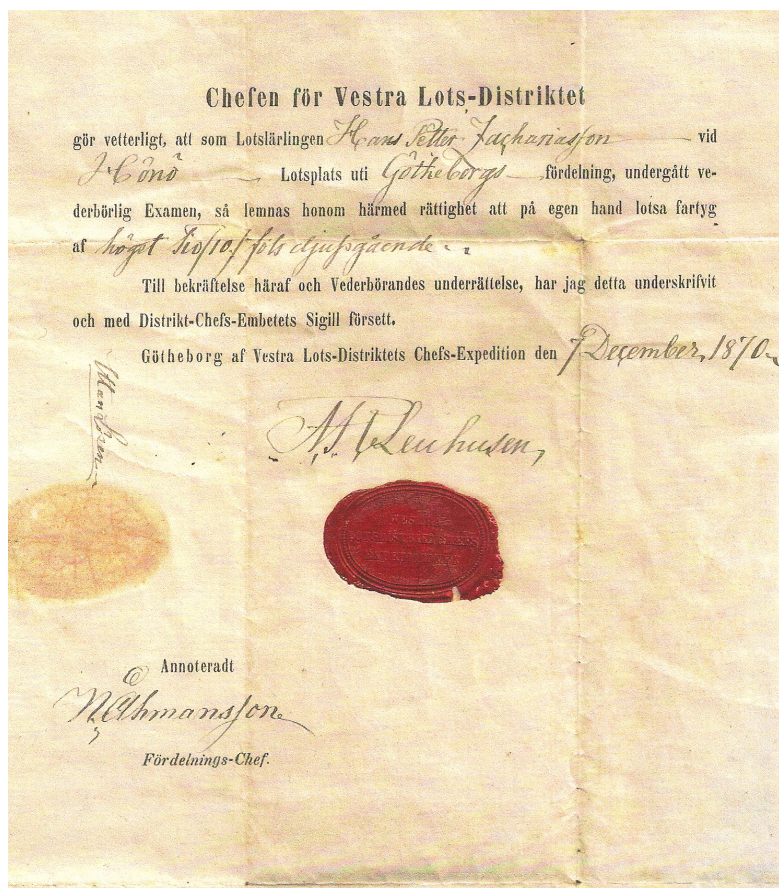 Chefen för Vestra Lots-Distriktet
gör vetterligt, att som Lotslärlingen Hans Petter Zachariasson vid
Hönö Lotsplats uti Götheborgs fördelning, undergått ve-
derbörlig Examen, så lemnas honom härmed rättighet att på egen hand lotsa fartyg
af högst Tio /10./ fots djupgående.
Till bekräftelse häraf och Vederbörandes underrättelse, har jag detta underskrifvit
och med Distrikt-Chefs-Embetets Sigill försett.
Götheborg af Vestra Lots-Distriktets Chefs-Expedition den 7 December, 1870.
Leuhusen,
Annoteradt
Åhmansson
Fördelnings-Chef.